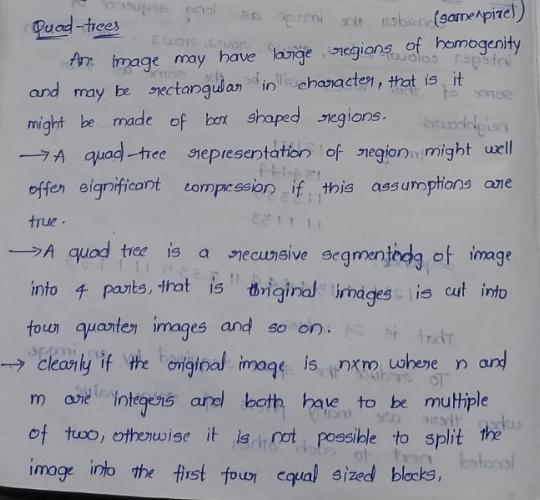 (same pixel)
Quad-trees
An image may have large regions of homogenity
and may be rectangular in character, that is it
might be made of box shaped regions.
→A quad-tree representation of region might well
offer significant compression if this assumptions are
true.
→A quad tree is a recursive segmentindg of image
into 4 parts, that is original images is cut into
four quarter images and so on.
→ clearly if the original image is nxm where n and
m are integers and both have to be multiple
of two, otherwise it is not possible to split the
image into the first four equal sized blocks,